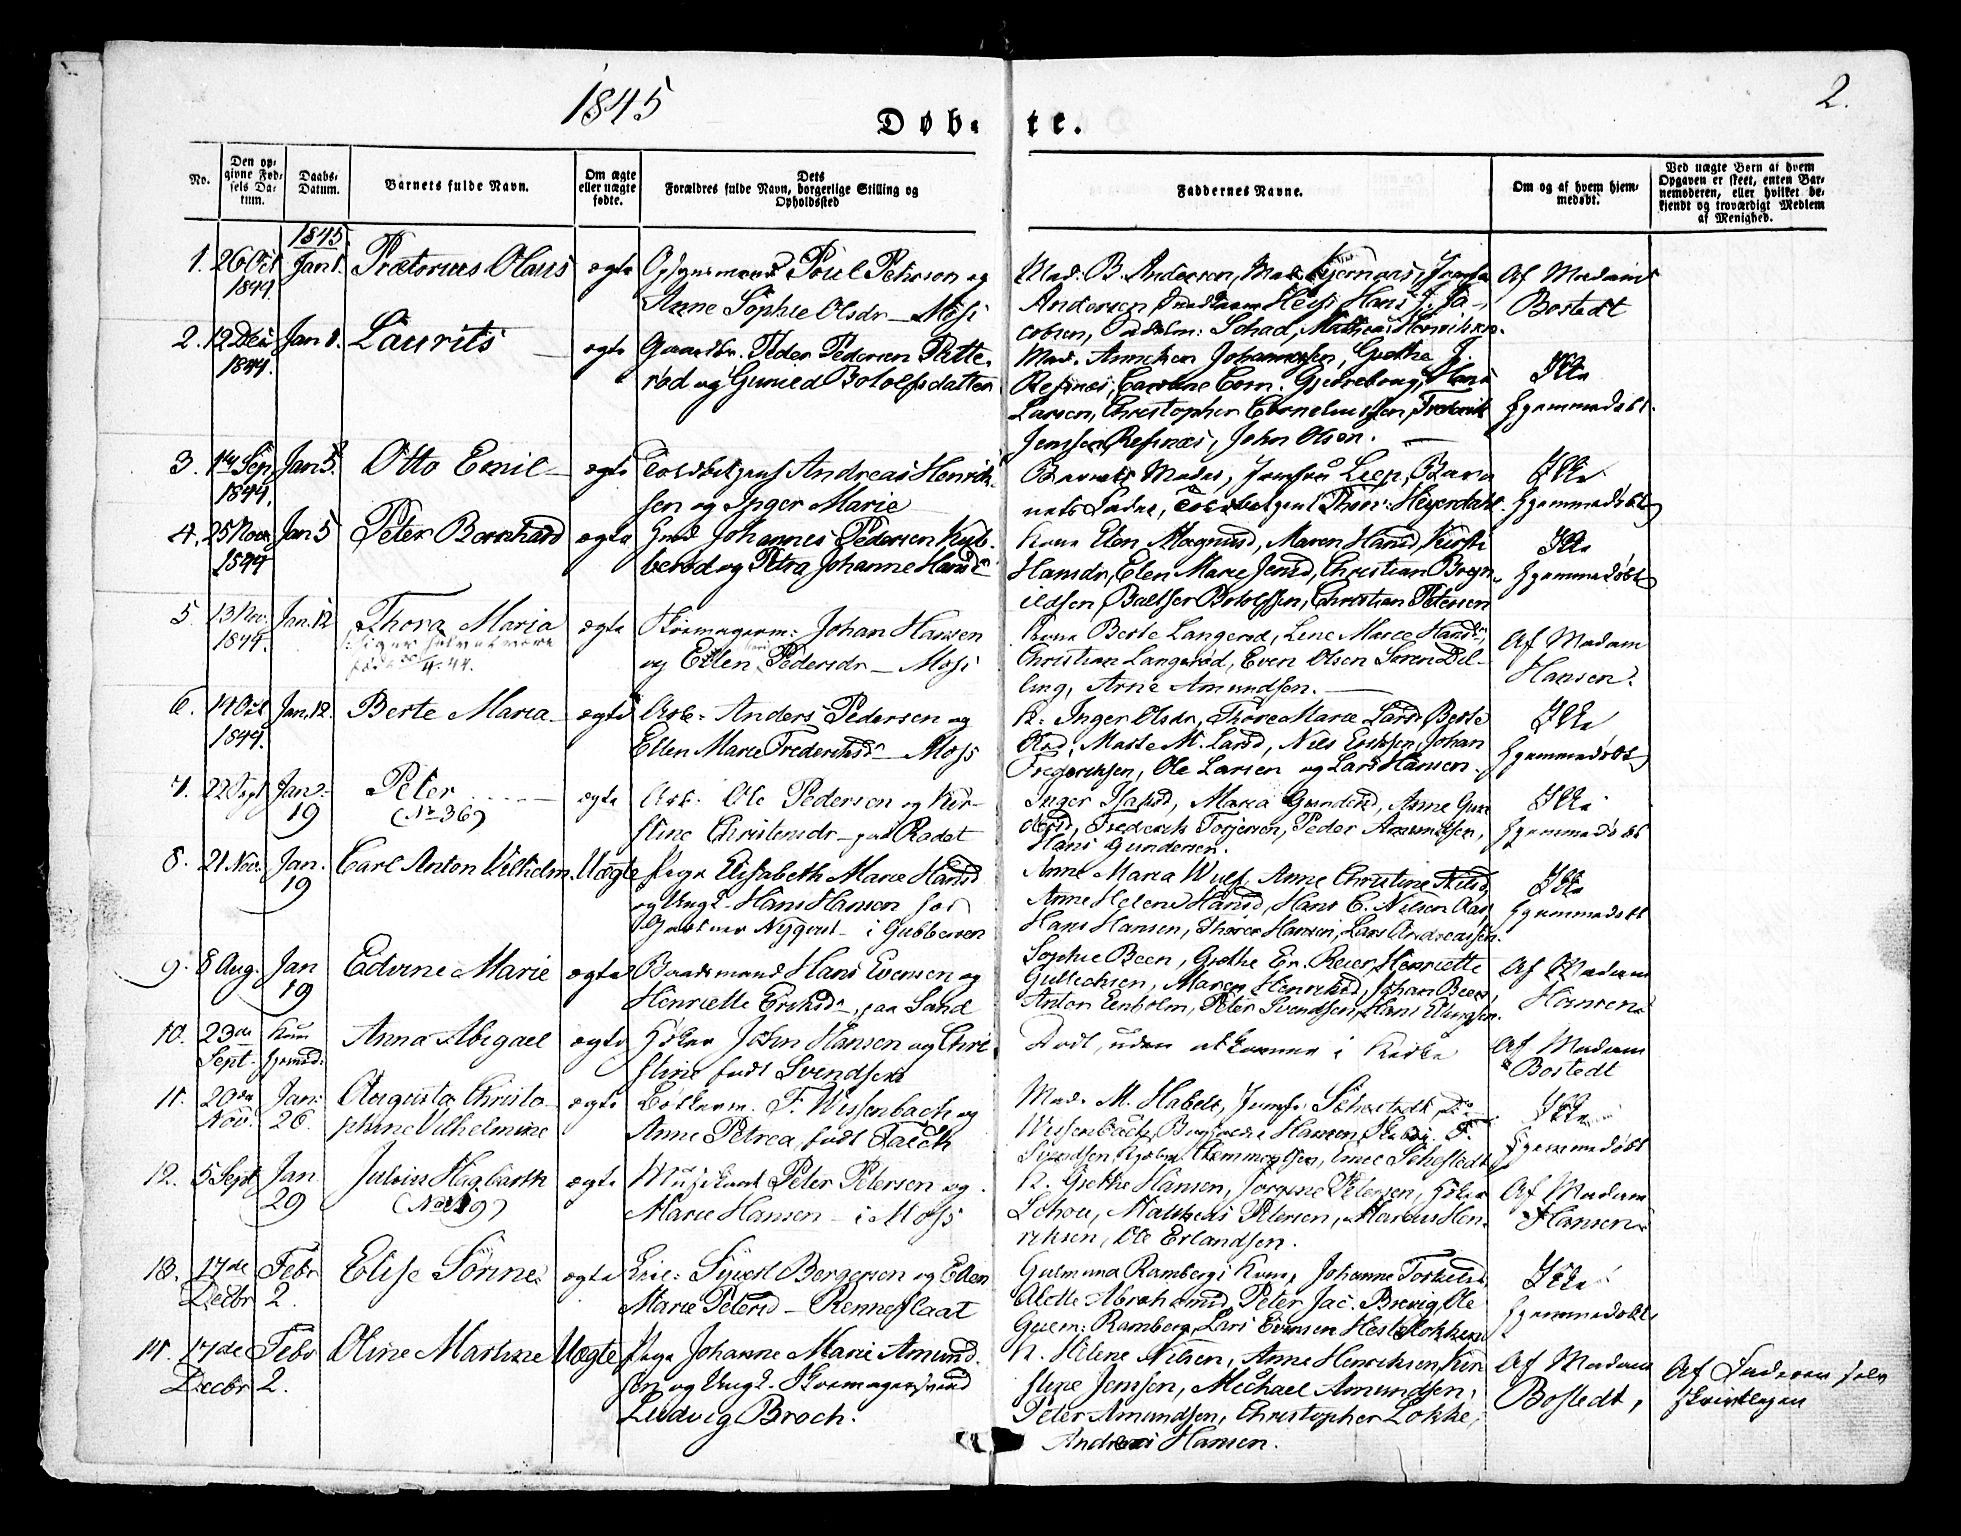 1845
2.
Døbte.
No.
Den opgivne Fødsels Datum.
Daabs-Datum.
Barnets fulde Navn.
Om ægte eller uægte fødte.
Dets Forældres fulde Navn, borgerlige Stilling og Opholdssted
Faddernes Navne.
Om og af hvem hjemmedøbt.
Ved uægte Børn af hvem Opgaven er skeet, enten Barnemoderen, eller hvilket bekjendt og troværdigt Medlem af Menighed.
1845
1. 26 Oct Jan 1. Prætorius Olaus ægte Opsynsmand Poul Petersen og
1844. Anne Sophie Olsdr — Moss
Mad. B. Andersen, Mad. Jomfr
Andersen Hans J. Ja-
cobsen, Schad, Mathias Henriksen.
Af Madame
Bostedt
2. 12 Dec Jan 1. Laurits ægte Gaardbr. Peder Pedersen Rette-
1844. rød og Gunild Bololfsdatter
Mad. Annichen Johannessen, Grethe J.
Refsnæs, Caroline Corn. Gjerreboug, Hans
Larsen, Christopher Corneliussen, Frederik
Jenssen Refsnæs, John Olsen.
Ikke
hjemmedøbt.
3. 14 Sep Jan 5. Otto Emil ægte Toldbetjent Andreas Henrik-
1844. sen og Inger Marie
Barnets Moder, Jomfru Lien, Bar-
nets Fader, Toldbetjent Thor: Heyerdahl.
Ikke
hjemmedøbt
4. 25 Nov Jan 5 Peter Bernhard ægte Gmd Johannes Pedersen Kul-
1844 berød og Petra Johanne Hansd
Kone Elen Magnusd, Maren Hansd, Kirsti
Hansdr, Elen Marie Jensd, Christian Bryn-
ildsen, Baltser Bololfssen, Christian Petersen
Ikke
hjemmedøbt
5. 13 Nov. Jan. 12 Thora Maria ægte Skomagerm: Johan Hansen
1844. og Ellen Pedersdr — Moss
siger selv at være
født 4. 44.
Kone Berte Langerød, Lene Marie Hansdr,
Christian Langerød, Even Olsen Søren Dil-
ling, Arne Amundsen.
Af Madam
Hansen.
6. 14 Oct Jan. 12. Berte Maria ægte Arb: Anders Pedersen og
1844. Ellen Marie Frederiksd — Moss
K: Inger Olsdr, Thore Marie Larsd, Berte
Marte M. Larsd, Nils Erichsen, Johan
Frederiksen, Ole Larsen og Lars Hansen.
Ikke
hjemmedøbt
7. 22 Sept Jan: Peter ægte Arb: Ole Pedersen og Kir-
19 (No 36) stine Christensdr — paa Rødet
Inger Isaksd, Maria Gundersd, Anne Gun-
dersd, Frederik Torjersen, Peder Amundsen,
Hans Gundersen.
Ikke
hjemmedøbt
8. 21 Nov. Jan. Carl Anton Vilhelm. Uægte Pige Elisabeth Marie Hansd
19 og Ungk. Hans Hansen hos
Gjæstner Nyqvist — i Gubberen
Anne Maria Wulf, Anne Christine Nilsd,
Anne Helene Hansd, Hans C. Nilsen Aas,
Hans Hansen, Thorer Hansen, Lars Andreassen.
Ikke
hjemmedøbt
9. 8 Aug. Jan Edvine Marie ægte Baadsmand Hans Evensen og
19 Henriette Eriksd, paa Sand
Sophie Been, Grethe Er. Reier, Henriette
Gullichsen, Maren Henriksd, Johan Been,
Anton Eenholm, Peter Svendsen, Hans Ellingsen.
Af Madam
Hansen
10. 23de kun Anna Abigael ægte Høker John Hansen og Chri-
Sept. hjemmd: stine født Svendsen
Død, uden at komme i Kirke
Af Madam
Bostedt
11. 20de Jan: Augusta Christo- ægte Bødkerm. F. Wissenbach og
Nov. 26. phine Vilhelmine Anne Petrea, født Falch
Mad. M. Habell, Jomfr. Schestedt
Wissenbach, Hansen, F.
Svendsen, Emil Schestedt
Ikke
hjemmedøbt
12. 5 Sept Jan Julius Hagbarth ægte Musikant Peter Petersen og
29 Marie Hansen — i Moss
K. Grethe Hansen, Jørgine Petersen, Høker
Schou, Mathias Petersen, Marcus Hen-
riksen, Ole Erlandsen.
Af Madam
Hansen
13. 17de Febr Elise Sørine ægte Leil: Syverl Bergersen og Ellen
Decbr 2. Marie Petersd — Rennefladt
Gulmund Rambergs Kone, Johanne Torkelsd,
Alette Abrahamsd, Peter Jac. Brevig, Ole
Gulm: Ramberg, Lars Evensen Hesteløkken
Ikke
hjemmedøbt
14. 17de Febr Oline Martine Uægte Pige Johanne Marie Amund-
Decbr 2. sen og Ungk. Skomagersvend
Ludvig Broch.
K. Helene Nilsen, Anne Henriksen, Kir-
stine Jenssen, Michael Amundsen,
Peter Amundsen, Christopher Løkke,
Andreas Hansen.
Af Madam
Bostedt,
Af Faderen selv
skriftlegen